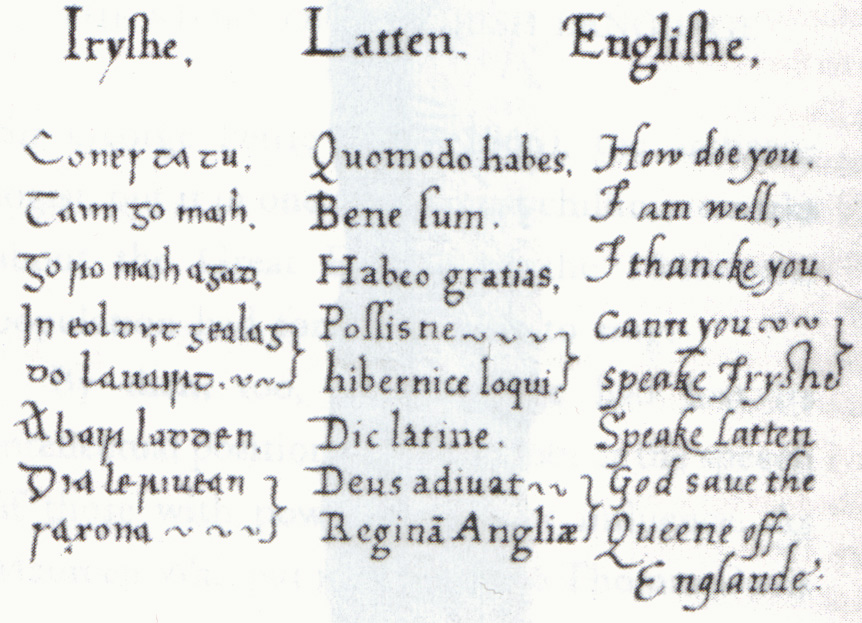 Iryshe, Latten. Englishe,
Coneſ ta tu. Quomodo habes, How doe you.
Taim go maih. Bene sum. I am well,
Go ſo maih agad, Habeo gratias, I thancke you,
In eolour gealag Possis ne Cann you
do lauairt. hibernice loqui, speake Iryshe
Abair ladden Dic latine. Speake Latten
Dia le riuean Deus adiuat God saue the
ſaxona Reginā Angliæ Queene off
Englande: